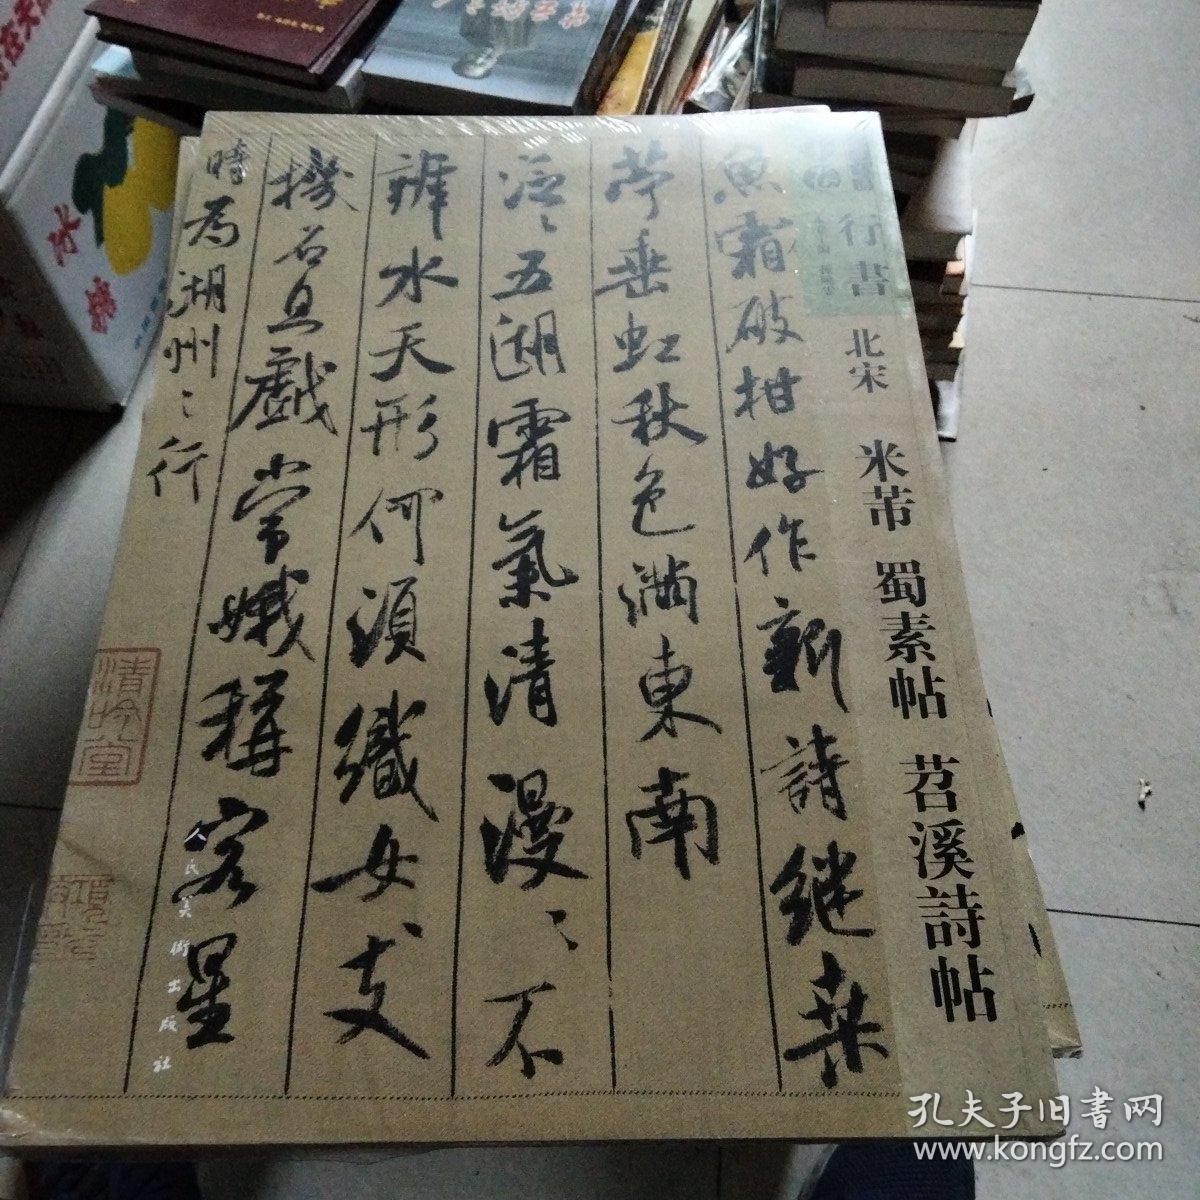 行書
北宋
米芾 蜀素帖 苕溪詩帖
魚霜破柑好作新詩継桒
苧垂虹秋色満東南
泛〻五湖霜氣清漫〻不
辨水天形何須織女支
機石且戲常娥稱客星
時為湖州之行
清吟堂
人民美術出版社
孔夫子旧書网
www.kongfz.com